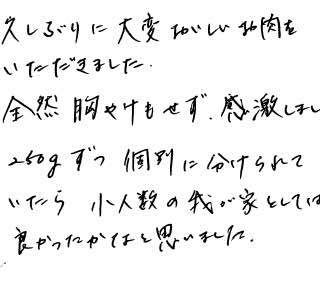 久しぶりに大変おいしいお肉を
いただきました.
全然胸やけもせず、感激しまし
250gずつ個別に分けられて
いたら 小人数の我が家としては
良かったかなと思いました.